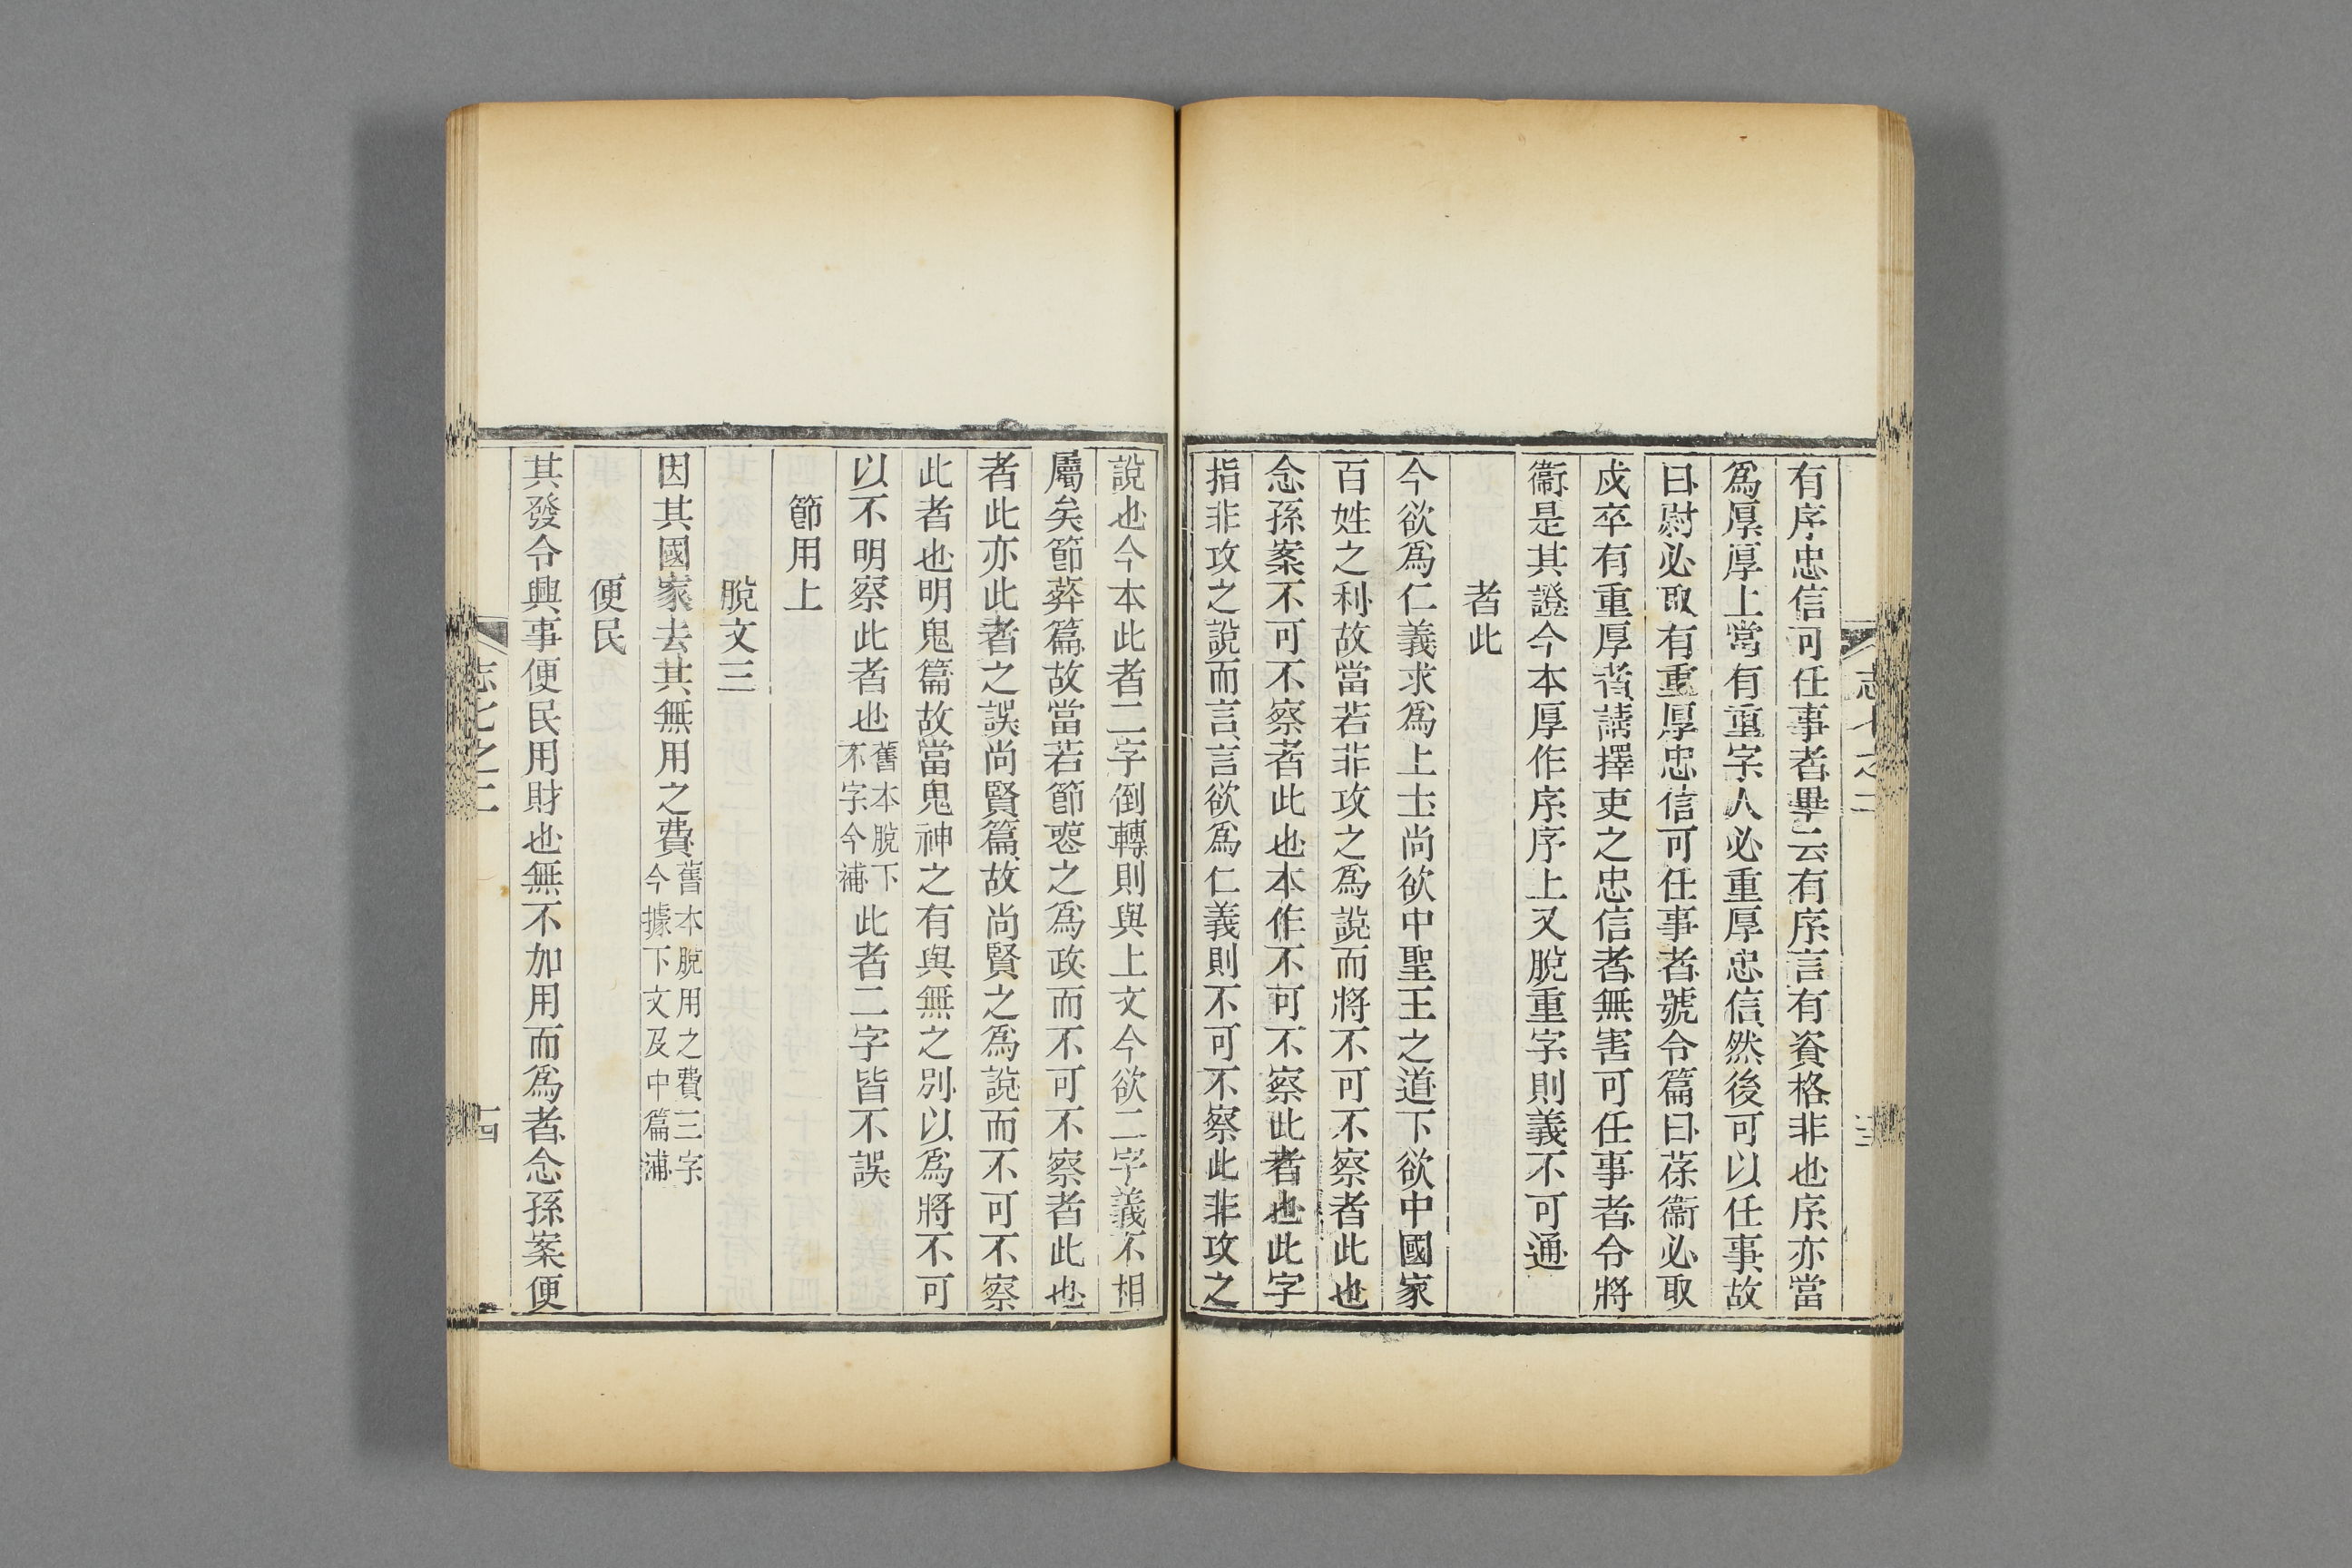 有序忠信可任事者畢云有序言有資格非也序亦當
爲厚厚上當有重字人必重厚忠信然後可以任事故
曰尉必取有重厚忠信可任事者號令篇曰葆衞必取
戍卒有重厚者請擇吏之忠信者無害可任事者令將
衞是其證今本厚作序序上又脫重字則義不可通
者此
今欲爲仁義求爲上士尚欲中聖王之道下欲中國家
百姓之利故當若非攻之爲說而將不可不察者此也
念孫案不可不察者此也本作不可不察此者也此字
指非攻之說而言言欲爲仁義則不可不察此非攻之
說也今本此者二字倒轉則與上文今欲二字義不相
屬矣節葬篇故當若節喪之爲政而不可不察者此也
者此亦此者之誤尚賢篇故尚賢之爲說而不可不察
此者也明鬼篇故當鬼神之有與無之別以爲將不可
以不明察此者也舊本脫下不字今補此者二字皆不誤
節用上
脫文三
因其國家去其無用之費舊本脫用之費三字今據下文及中篇補
便民
其發令興事便民用財也無不加用而爲者念孫案便
志七之二
十四